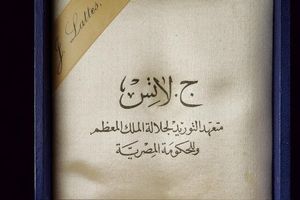 J. Lattes.
ج. لاتس
متعهد التوريد لجلالة الملك المعظم
وللحكومة المصرية